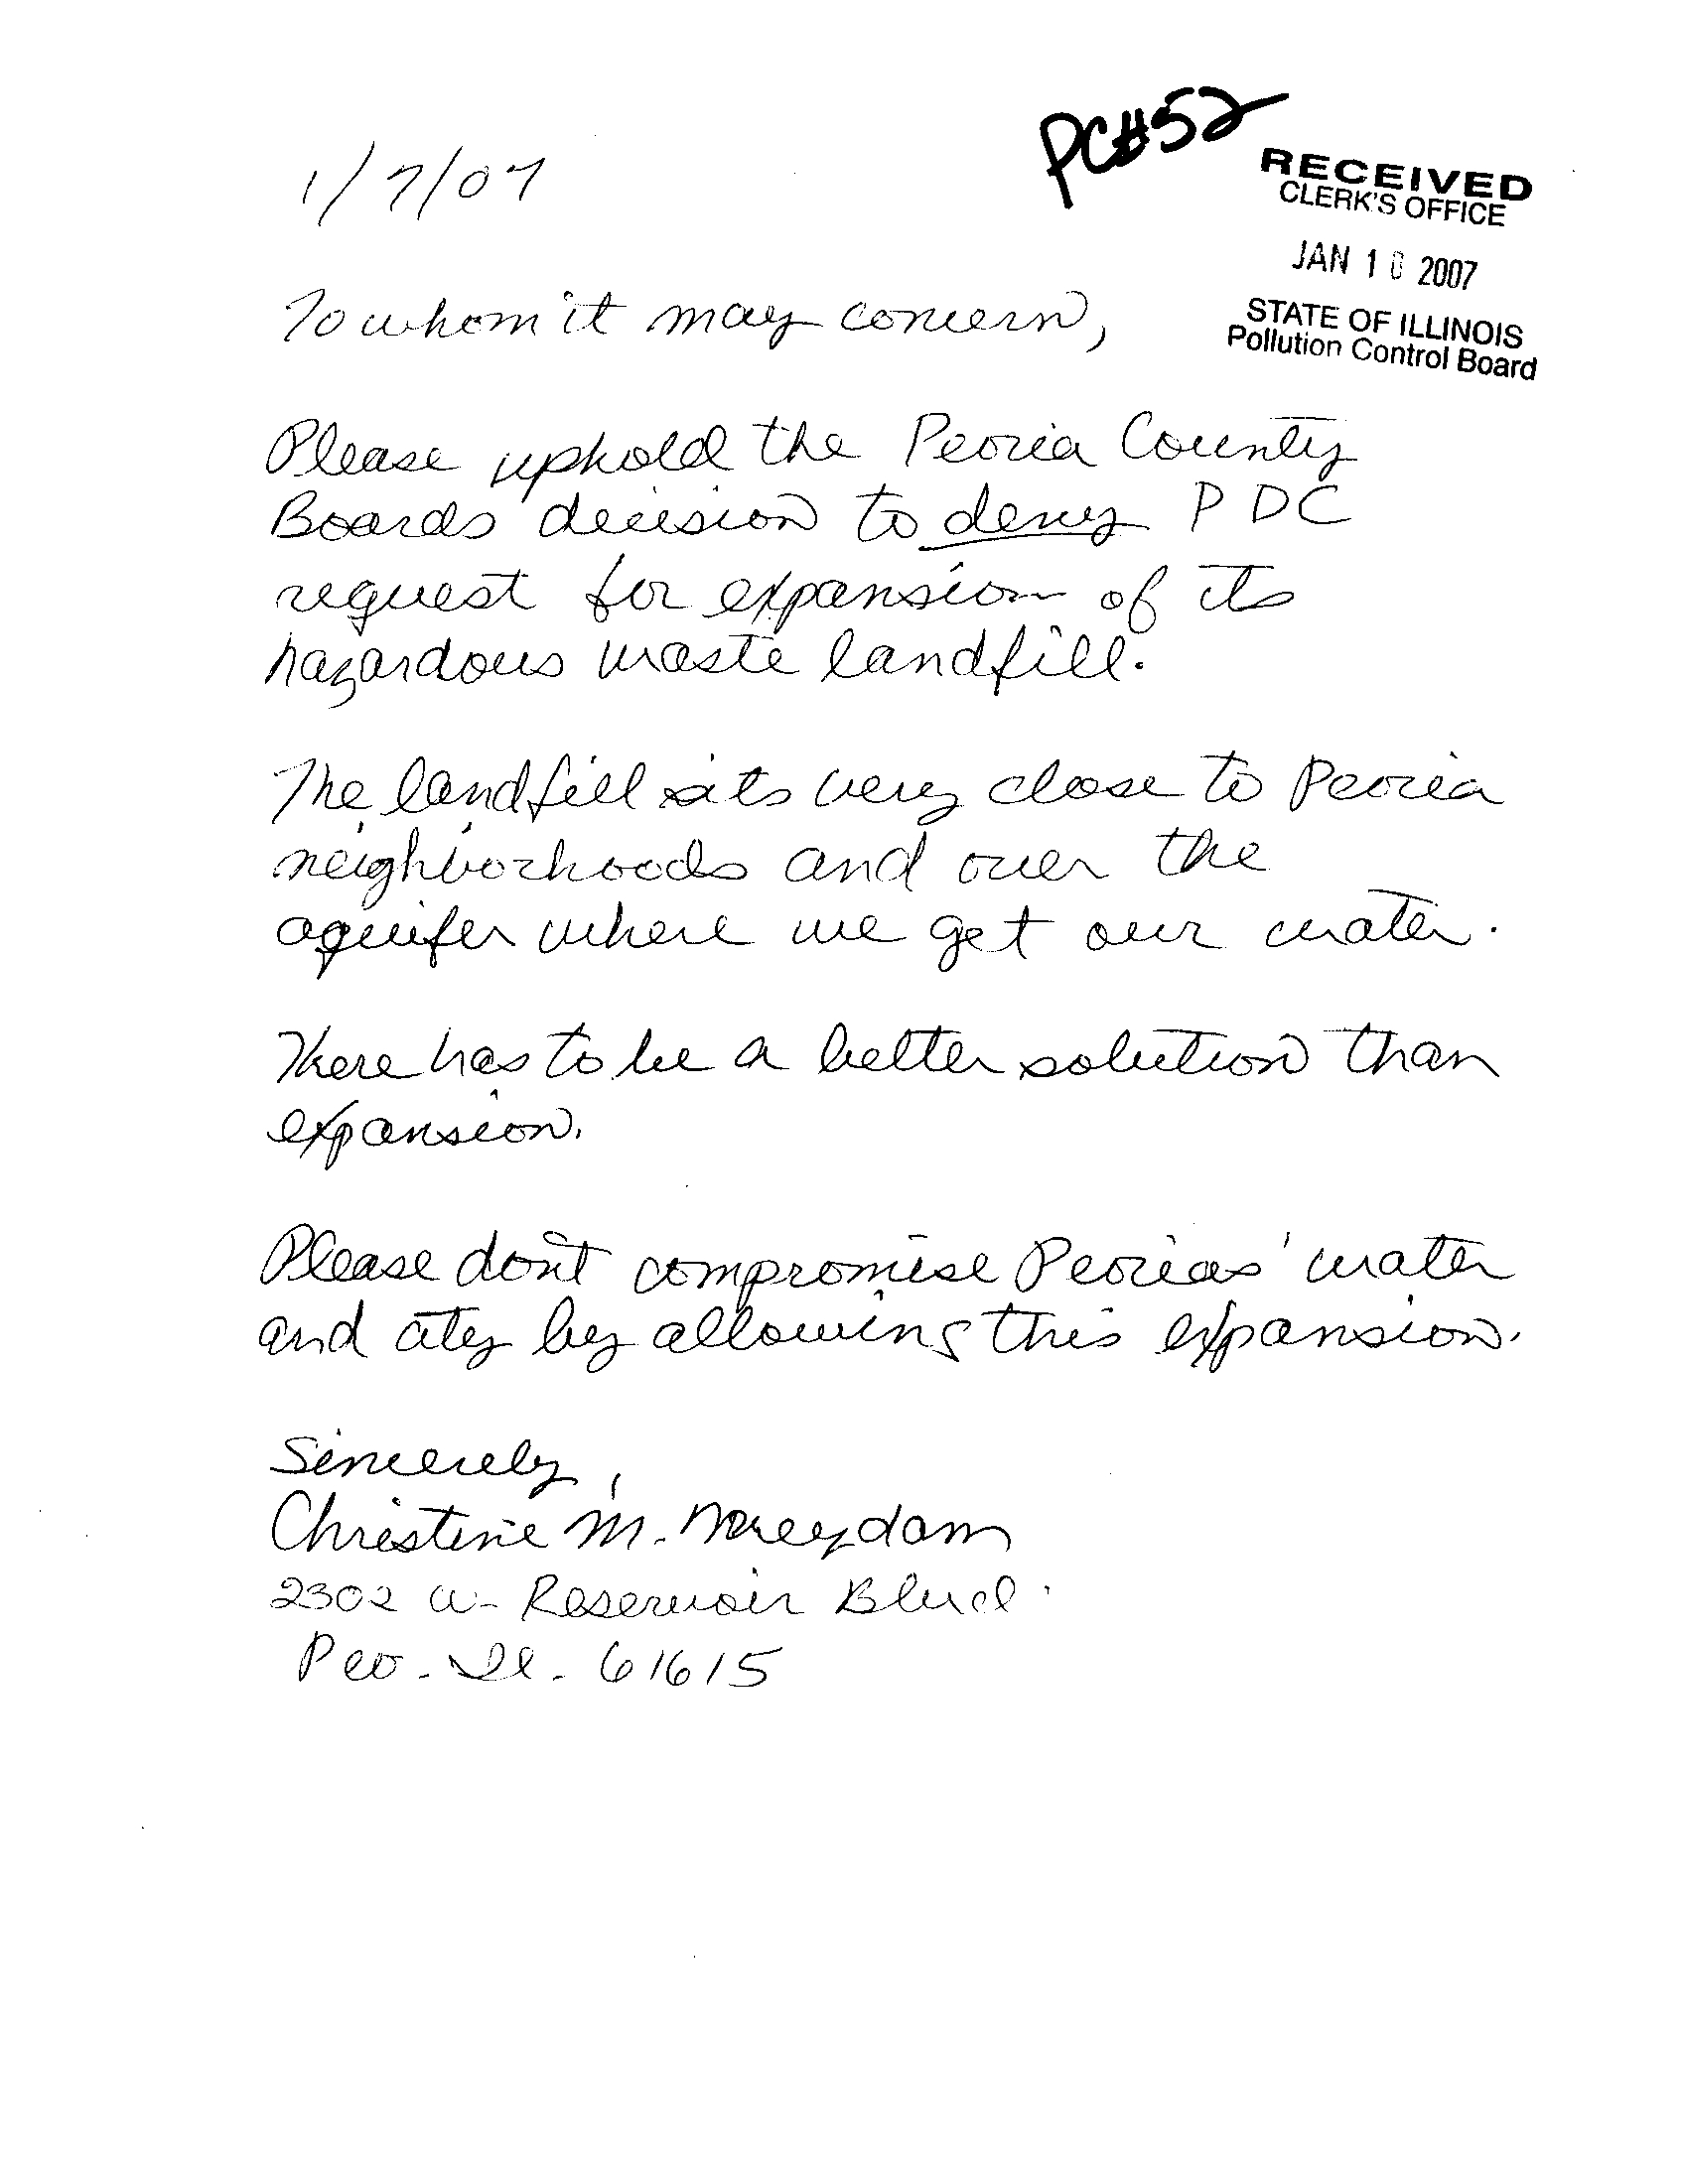 PC#52
RECEIVED
CLERK'S OFFICE
JAN 10 2007
STATE OF ILLINOIS
Pollution Control Board
1/7/07
To whom it may concern,
Please uphold the Peoria County
Boards decision to deny PDC
request for expansion of its
hazardous waste landfill.
The landfill sits very close to Peoria
neighborhoods and over the
aquifer where we get our water.
There has to be a better solution than
expansion.
Please don't compromise Peorias' water
and city by allowing this expansion.
Sincerely,
Christine M.
2302 W. Reservoir Blvd.
Peo. Il. 61615